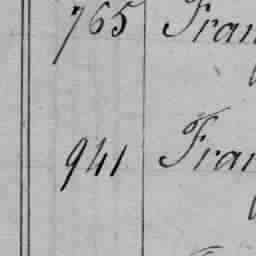 765 Fran
941 Fran